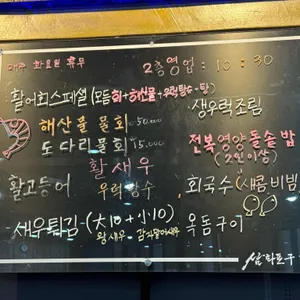 매주 화요일 휴무
2층영업 : 10 : 30
활어회스페셜 (모듬회+해산물+우럭탕수+탕)
생우럭조림
해산물 물회 50,000
도다리물회 15,000
전복영양돌솥밥
(2인이상)
활새우
활고등어
우럭탕수
회국수(새콤비빔
새우튀김-(大10+小10)
왕새우
옥돔구이